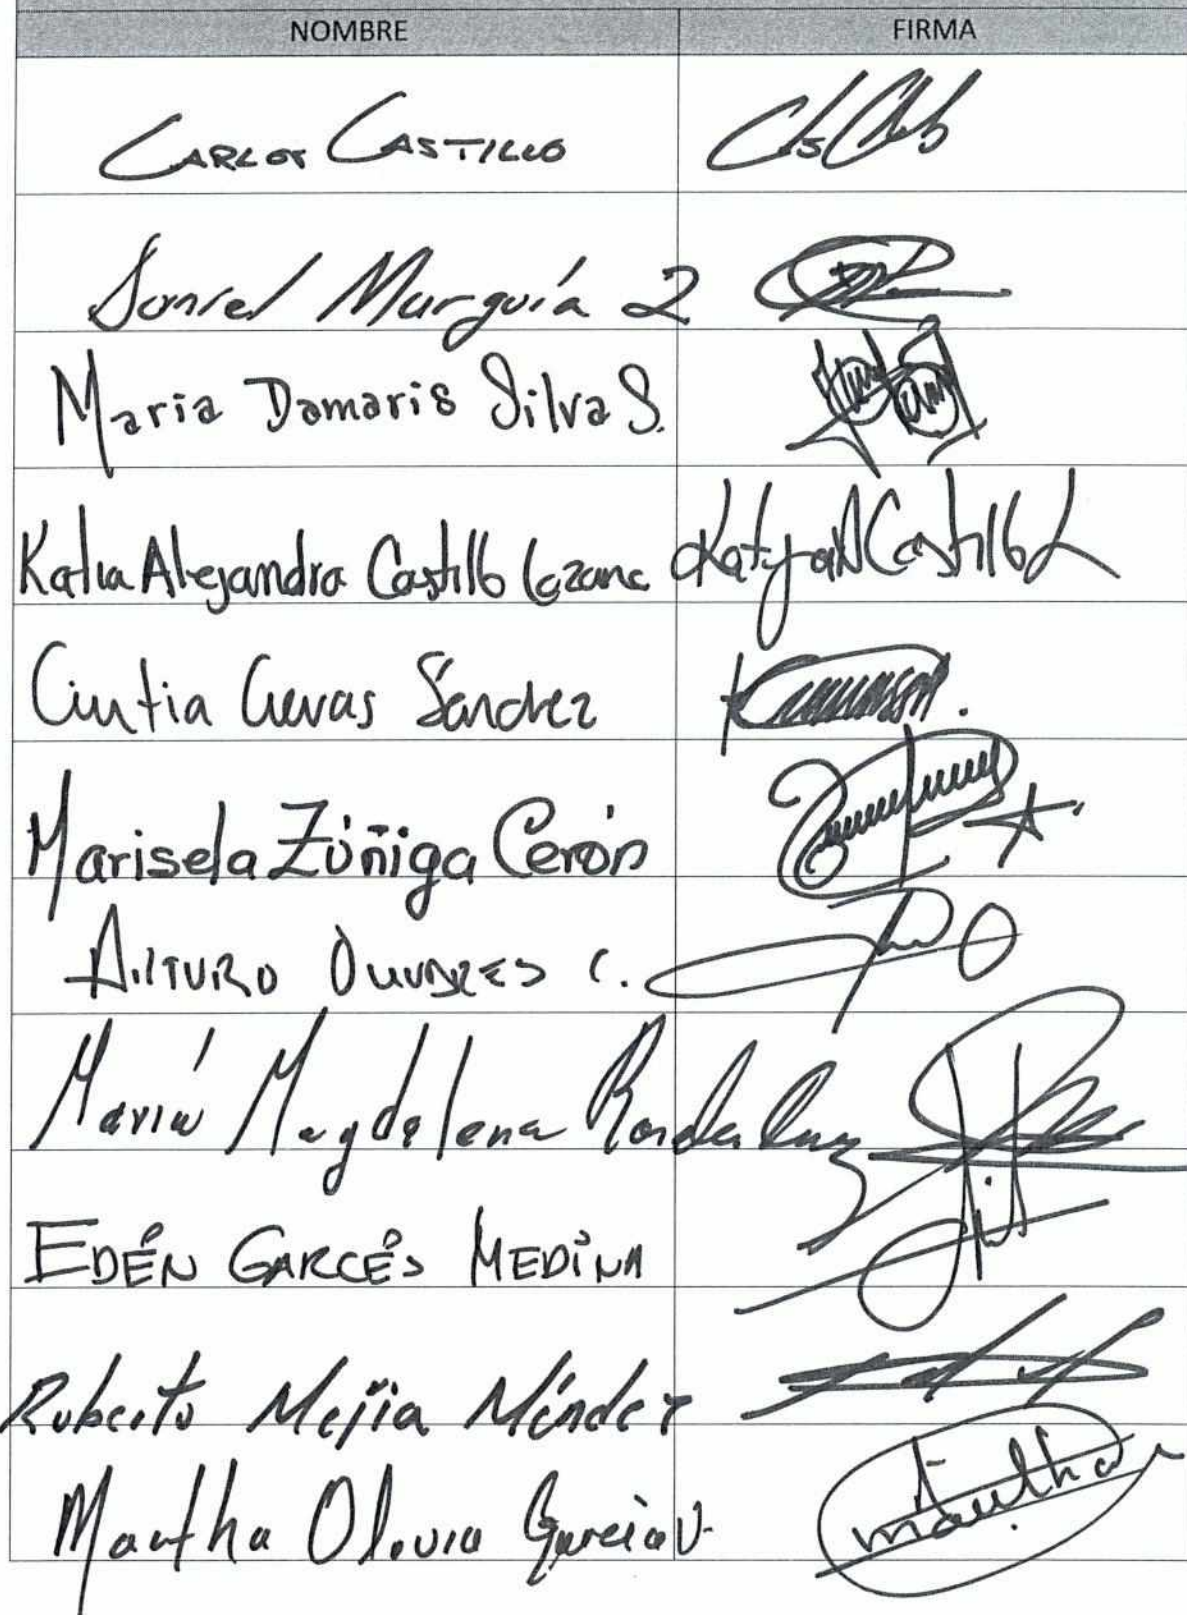 NOMBRE FIRMA
CARLOS CASTILLO
Daniel Murguía
Maria Damaris Silva S.
Katia Alejandra Castillo Lozano Katya A Castillo L
Cintia Cuevas Sánchez
Marisela Zúñiga Cerón
ARTURO OLIVARES C.
María Magdalena
EDÉN GARCÉS MEDINA
Roberto Mejía Méndez
Martha Olivia García V. Martha